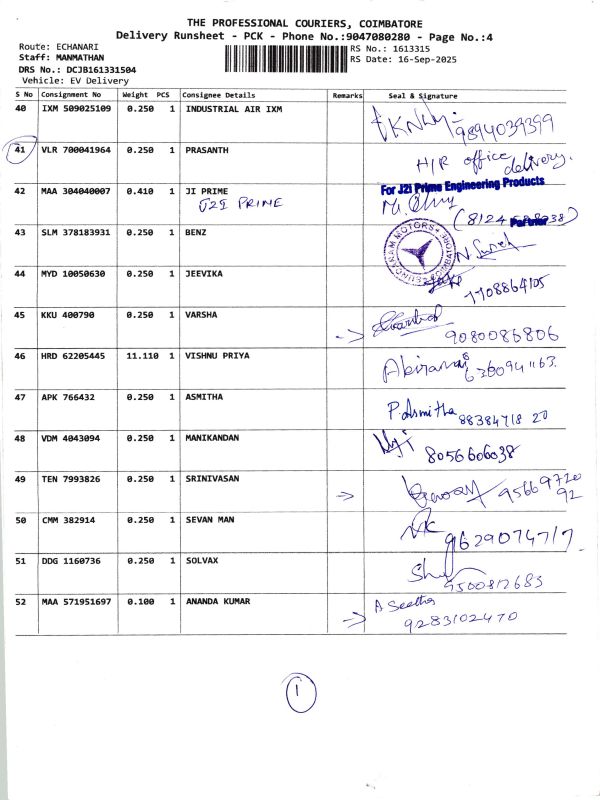 THE PROFESSIONAL COURIERS, COIMBATORE
Delivery Runsheet - PCK - Phone No.:9047080280 - Page No.:4
Route: ECHANARI
RS No.: 1613315
Staff: MANMATHAN
RS Date: 16-Sep-2025
DRS No.: DCJB161331504
Vehicle: EV Delivery
S No Consignment No Weight PCS Consignee Details Remarks Seal & Signature
40 IXM 509025109 0.250 1 INDUSTRIAL AIR IXM
9894039399
41 VLR 700041964 0.250 1 PRASANTH
H/R office delivery.
42 MAA 304040007 0.410 1 JI PRIME
J2I PRIME
For J2i Prime Engineering Products
Partner
43 SLM 378183931 0.250 1 BENZ
44 MYD 10050630 0.250 1 JEEVIKA
7708864105
45 KKU 400790 0.250 1 VARSHA
9080086806
46 HRD 62205445 11.110 1 VISHNU PRIYA
Abirami
6380941163.
47 APK 766432 0.250 1 ASMITHA
P. Asmitha 88384718 20
48 VDM 4043094 0.250 1 MANIKANDAN
8056606038
49 TEN 7993826 0.250 1 SRINIVASAN
95669720
92
50 CMM 382914 0.250 1 SEVAN MAN
9629074717
51 DDG 1160736 0.250 1 SOLVAX
9500812683
52 MAA 571951697 0.100 1 ANANDA KUMAR
A Seetha
9283102470
1